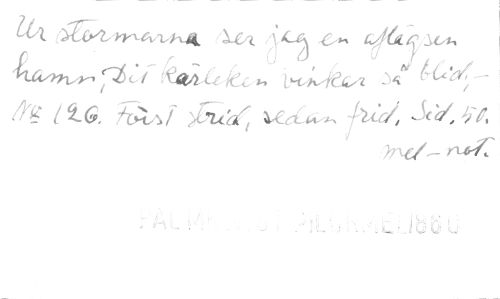 Ur stormarna ser jag en aflägsen
hamn, Dit kärleken vinkar så blid,-
No 126. Först strid, sedan frid. Sid. 50.
mel-not.